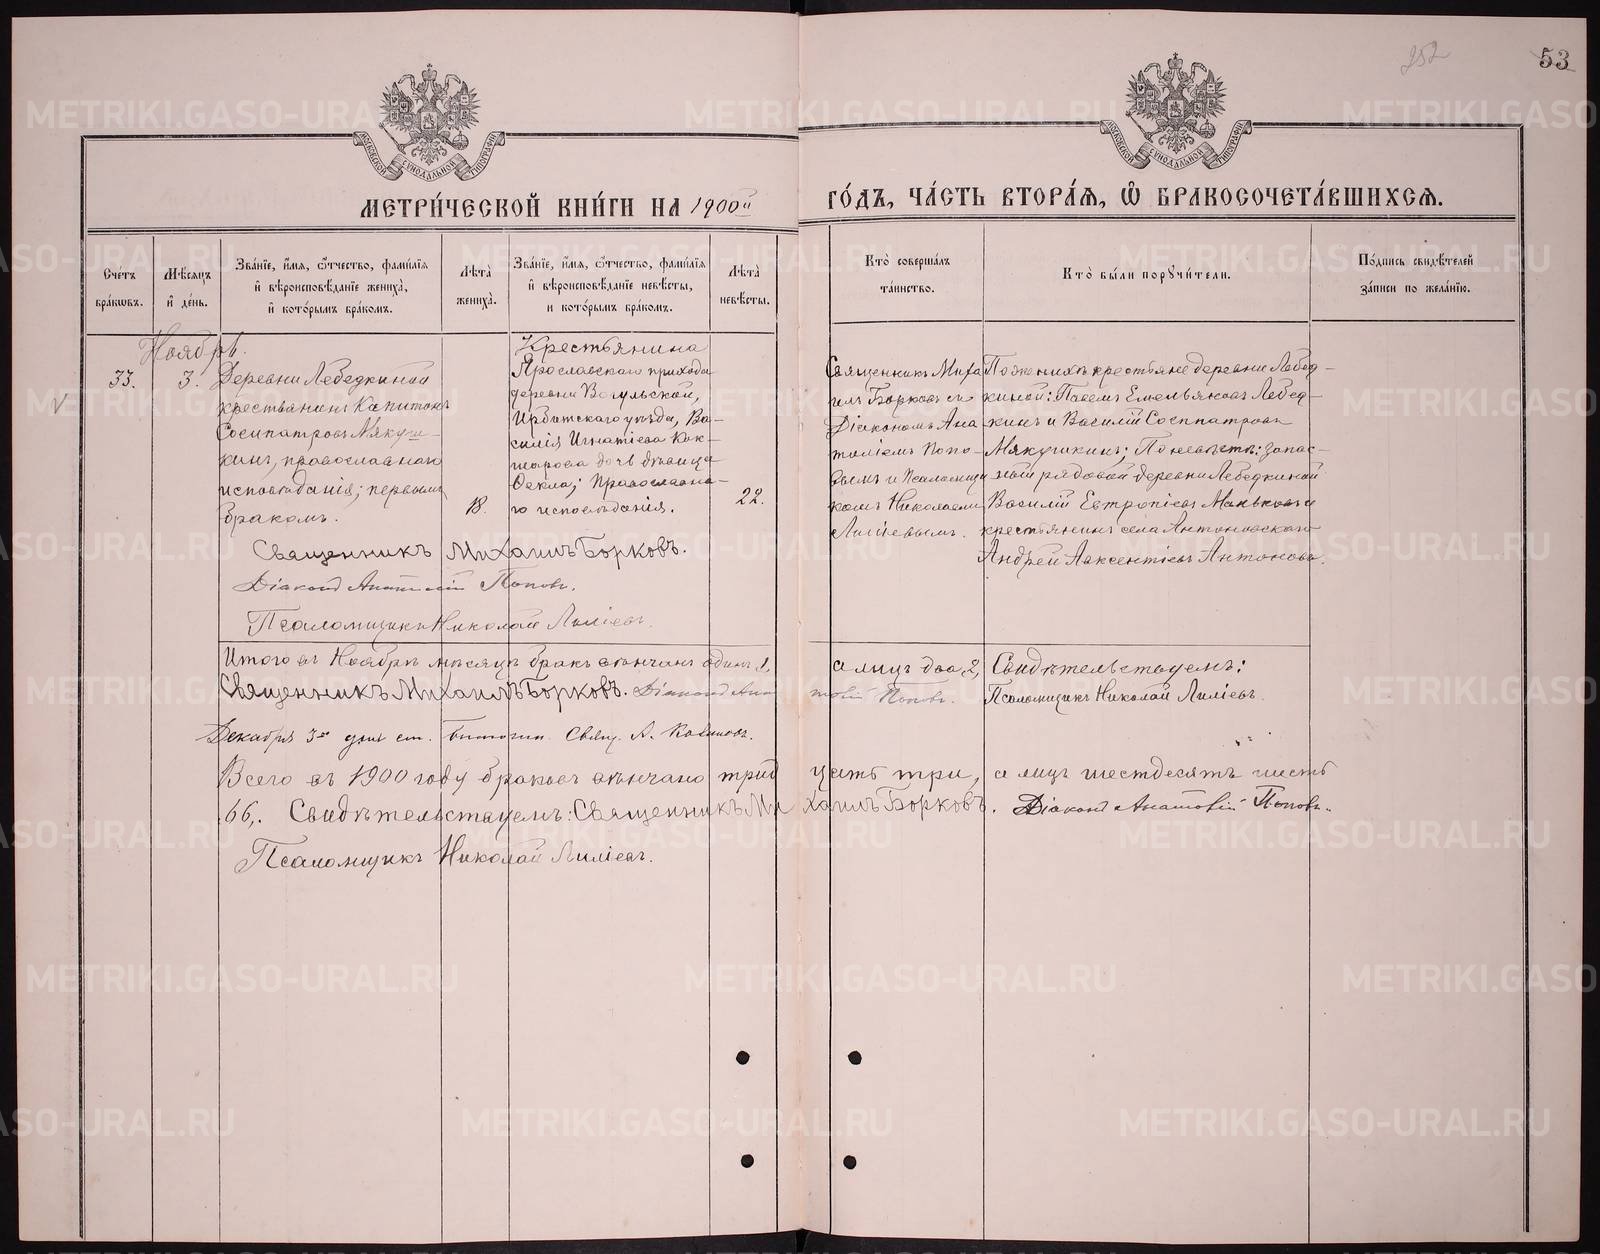 252
53
МОСКОВСКОЙ СѴНОДАЛЬНОЙ ТИПОГРАФІИ
МОСКОВСКОЙ СѴНОДАЛЬНОЙ ТИПОГРАФІИ
МЕТРИ́ЧЕСКОЙ КНИ́ГИ НА 1900й ГО́ДЪ, ЧА́СТЬ ВТОРА́Я, Ѽ БРАКОСОЧЕТА́ВШИХСѦ.
Сче́тъ бра́кѡвъ.
Мѣ́сѧцъ и҆ де́нь.
Зва́нїе, и҆́мѧ, ѻ҆́тчество, фами́лїѧ и҆ вѣроисповѣ́данїе жениха̀, и҆ кото́рымъ бра́комъ.
Лѣ́та жениха̀.
Зва́нїе, и҆́мѧ, ѻ҆́тчество, фами́лїѧ и҆ вѣроисповѣ́данїе невѣ́сты, и кото́рымъ бра́комъ.
Лѣ́та невѣ́сты.
Кто̀ соверша́лъ та́инство.
Кто̀ бы́ли порꙋчи́тели.
По́дпись свидѣ́телей за́писи по жела́нїю.
Ноябрь.
33.
3.
Деревни Лебедкиной
крестьянинъ Капитонъ
Сосипатровъ Мякуш-
кинъ, православнаго
исповѣданія; первымъ
бракомъ.
18.
Крестьянина
Ярославскаго прихода
деревни Вогульской,
Ирбитскаго уѣзда, Ва-
силія Игнатіева Кок-
шарова дочь дѣвица
Ѳекла; Православна-
го исповѣданія.
22.
Священникъ Миха
илъ Борковъ съ
Діакономъ Ана
толіемъ Попо-
вымъ и Псаломщи
комъ Николаемъ
Лиліевымъ.
По женихѣ: крестьяне деревни Лебед-
киной: Павелъ Емельяновъ Лебед-
кинъ и Василій Сосипатровъ
Мякушкинъ; По невѣстѣ: запас-
ный рядовой деревни Лебедкиной
Василій Евтропіевъ Маньковъ и
крестьянинъ села Антоновскаго
Андрей Авксентіевъ Антоновъ.
Священникъ Михаилъ Борковъ.
Діаконъ Анатолій Поповъ.
Псаломщикъ Николай Лиліевъ.
Итого въ Ноябрѣ мѣсяцѣ бракъ вѣнчанъ одинъ 1, а лицъ два, 2, Свидѣтельствуемъ:
Священникъ Михаилъ Борковъ. Діаконъ Анатолій Поповъ. Псаломщикъ Николай Лиліевъ.
Декабря 3го дня Свящ. А.
Всего въ 1900 году браковъ вѣнчано тридцать три, а лицъ шестдесятъ шесть
66,. Свидѣтельствуемъ: Священникъ Михаилъ Борковъ. Діаконъ Анатолій Поповъ.
Псаломщикъ Николай Лиліевъ.
METRIKI.GASO-URAL.RU